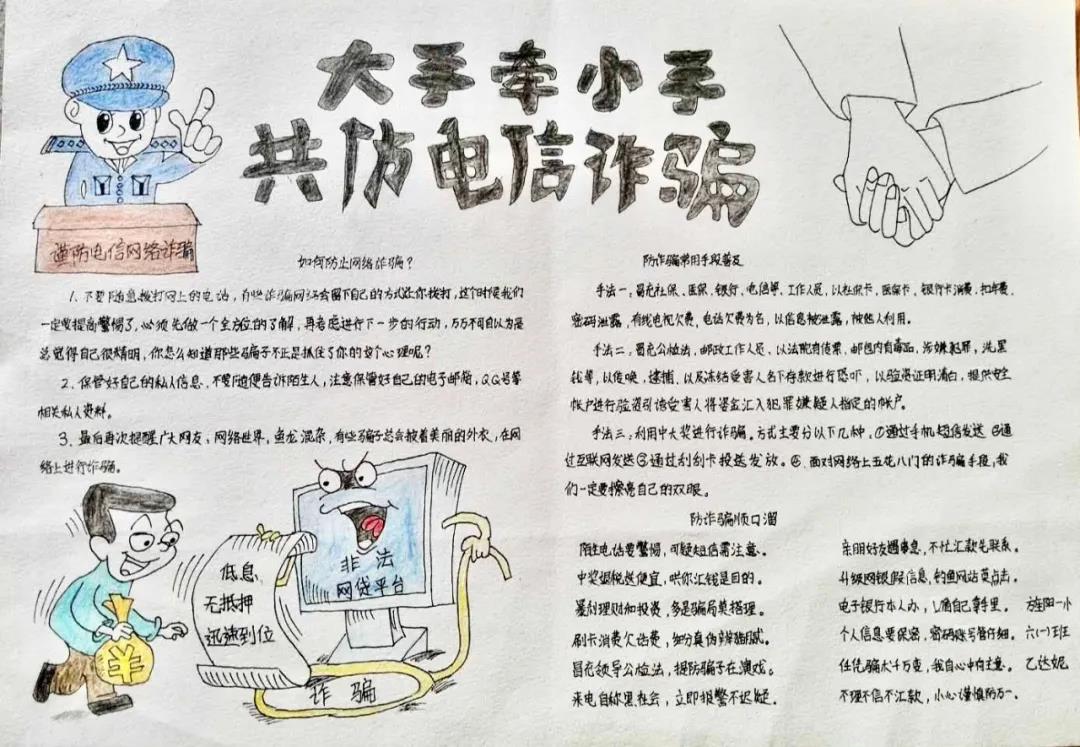 大手牵小手
共防电信诈骗
谨防电信网络诈骗
如何防止网络诈骗？
1. 不要随意拨打网上的电话，有些诈骗网络会留下自己的方式让你拨打，这个时候我们
一定要提高警惕了，必须先做一个全方位的了解，再考虑进行下一步的行动，万万不可自以为是
总觉得自己很精明，你怎么知道那些骗子不正是抓住了你的这个心理呢？
2. 保管好自己的私人信息，不要随便告诉陌生人，注意保管好自己的电子邮箱，QQ号等
相关私人资料。
3. 最后再次提醒广大网友，网络世界，鱼龙混杂，有些骗子总会披着美丽的外衣，在网
络上进行诈骗。
低息
无抵押
迅速到位
非法
网贷平台
诈骗
防诈骗常用手段普及
手法一：冒充社保、医保、银行、电信等、工作人员，以社保卡、医保卡、银行卡消费、扣年费、
密码泄露，有线电视欠费，电话欠费为名，以信息被泄露，被他人利用。
手法二：冒充公检法，邮政工作人员，以法院有传票，邮包内有毒品，涉嫌犯罪，洗黑
钱等，以传唤，逮捕，以及冻结受害人名下存款进行恐吓，以验资证明清白，提供安全
帐户进行验资引诱受害人将资金汇入犯罪嫌疑人指定的帐户。
手法三：利用中大奖进行诈骗。方式主要分以下几种，①通过手机短信发送 ②通
过互联网发送③通过刮刮卡投送发放。④、面对网络上五花八门的诈骗手段，我
们一定要擦亮自己的双眼。
防诈骗顺口溜
陌生电话要警惕，可疑短信需注意。
中奖退税送便宜，哄你汇钱是目的。
暴利理财加投资，多是骗局莫搭理。
刷卡消费欠话费，细分真伪辨猫腻。
冒充领导公检法，提防骗子在演戏。
来电自称黑社会，立即报警不迟疑。
亲朋好友遇事急，不忙汇款先联系。
升级网银假信息，钓鱼网站莫点击。
电子银行本人办，U盾自己拿手里。
个人信息要保密，密码账号管仔细。
任凭骗术千万变，我自心中有主意。
不理不信不汇款，小心谨慎防万一。
旌阳一小
六（一）班
乙达妮